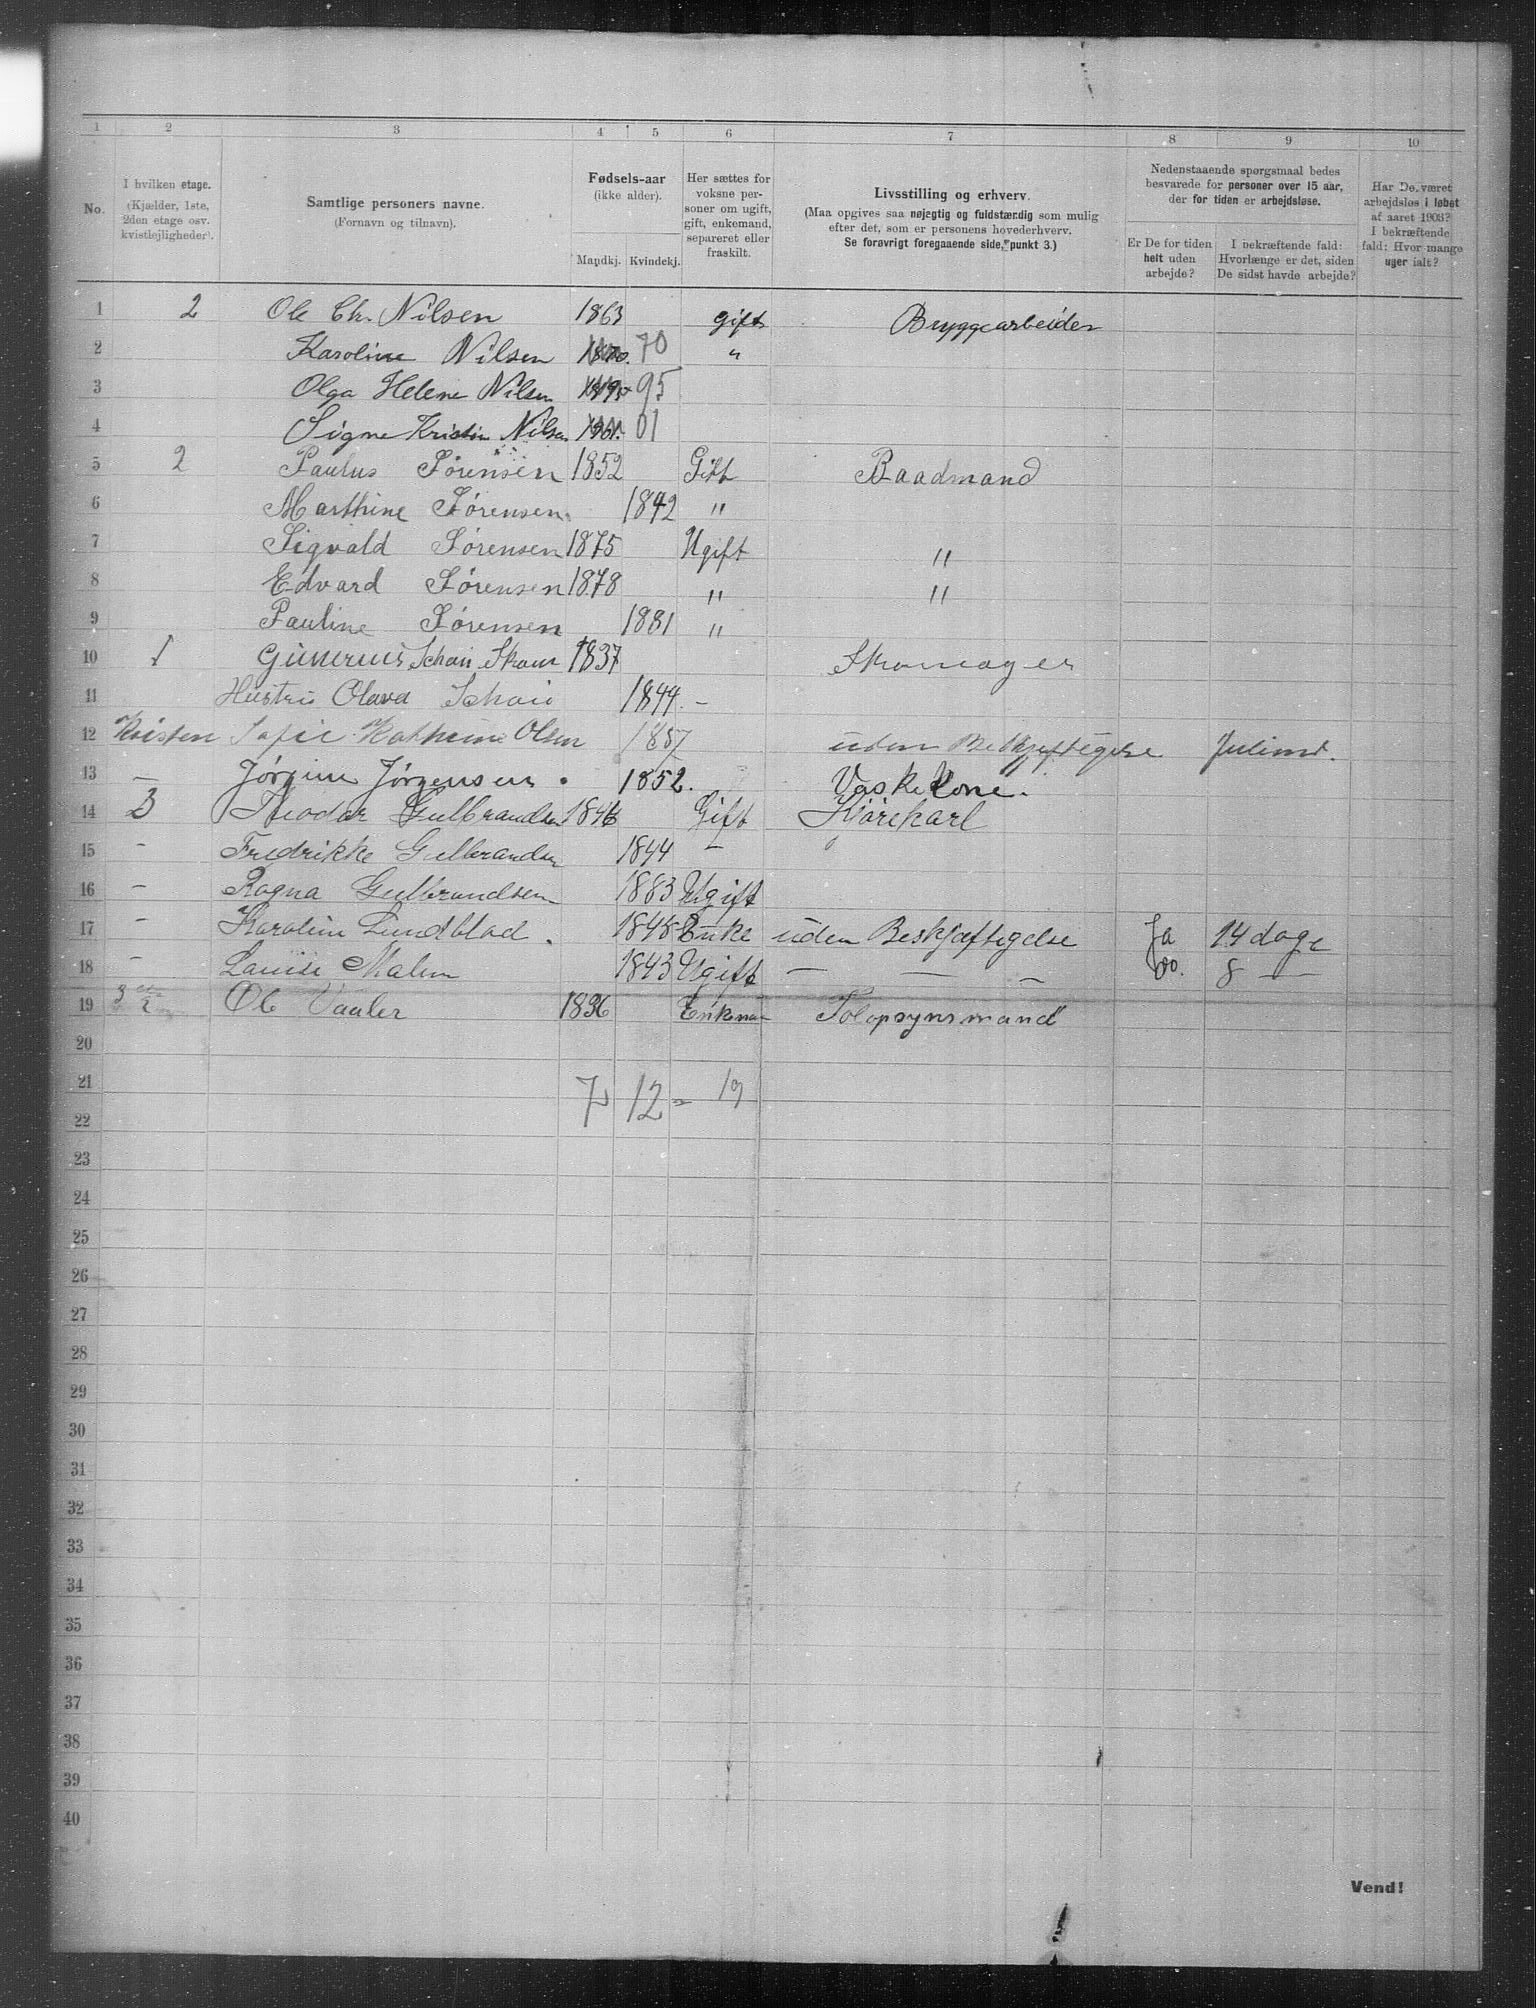 1 2 3 4 5 6 7 8 9 10
No.
I hvilken etage. (Kjælder, 1ste, 2den etage osv. kvistlejligheder).
Samtlige personers navne. (Fornavn og tilnavn).
Fødsels-aar (ikke alder). Mandkj. Kvindekj.
Her sættes for voksne personer om ugift, gift, enkemand, separeret eller fraskilt.
Livsstilling og erhverv. (Maa opgives saa nøjegtig og fuldstændig som mulig efter det, som er personens hovederhverv. Se forøvrigt foregaaende side, punkt 3.)
Nedenstaaende spørgsmaal bedes besvarede for personer over 15 aar, der for tiden er arbejdsløse.
Er De for tiden helt uden arbejde?
I bekræftende fald: Hvorlænge er det, siden De sidst havde arbejde?
Har De været arbejdsløs i løbet af aaret 1903? I bekræftende fald: Hvor mange uger ialt?
1 2 Ole Chr. Nilsen 1863 gift Bryggearbeider
2 Karoline Nilsen 1870. 70 "
3 Olga Helene Nilsen 1895 95
4 Signe Kristin Nilsen 1901. 01
5 2 Paulus Sørensen 1852 Gift Baadmand
6 Marthine Sørensen. 1842 "
7 Sigvald Sørensen 1875 Ugift "
8 Edvard Sørensen 1878 " "
9 Pauline Sørensen 1881 "
10 1 Gunerius Schou 1837 Skomager
11 Hustru Olava Schou 1844. –
12 Kvisten Sofie Kathrine Olsen 1857 uden Beskjeftigelse Juli md.
13 — Jørgine Jørgensen. 1852. Vaskekone.
14 3 Theodor Gulbrandsen 1846 Gift Kjørekarl
15 – Fredrikke Gulbrandsen 1844 –
16 – Ragna Gulbrandsen 1883 Ugift
17 – Karoline Lundblad. 1848 Enke uden Beskjæftigelse Ja 14 dage
18 – Louise Malm 1843 Ugift — — — Do. 8 —
19 3 Ole Vauler 1836 Enkeman Toldopsynsmand
20
21
7 12 = 19
22
23
24
25
26
27
28
29
30
31
32
33
34
35
36
37
38
39
40
Vend!